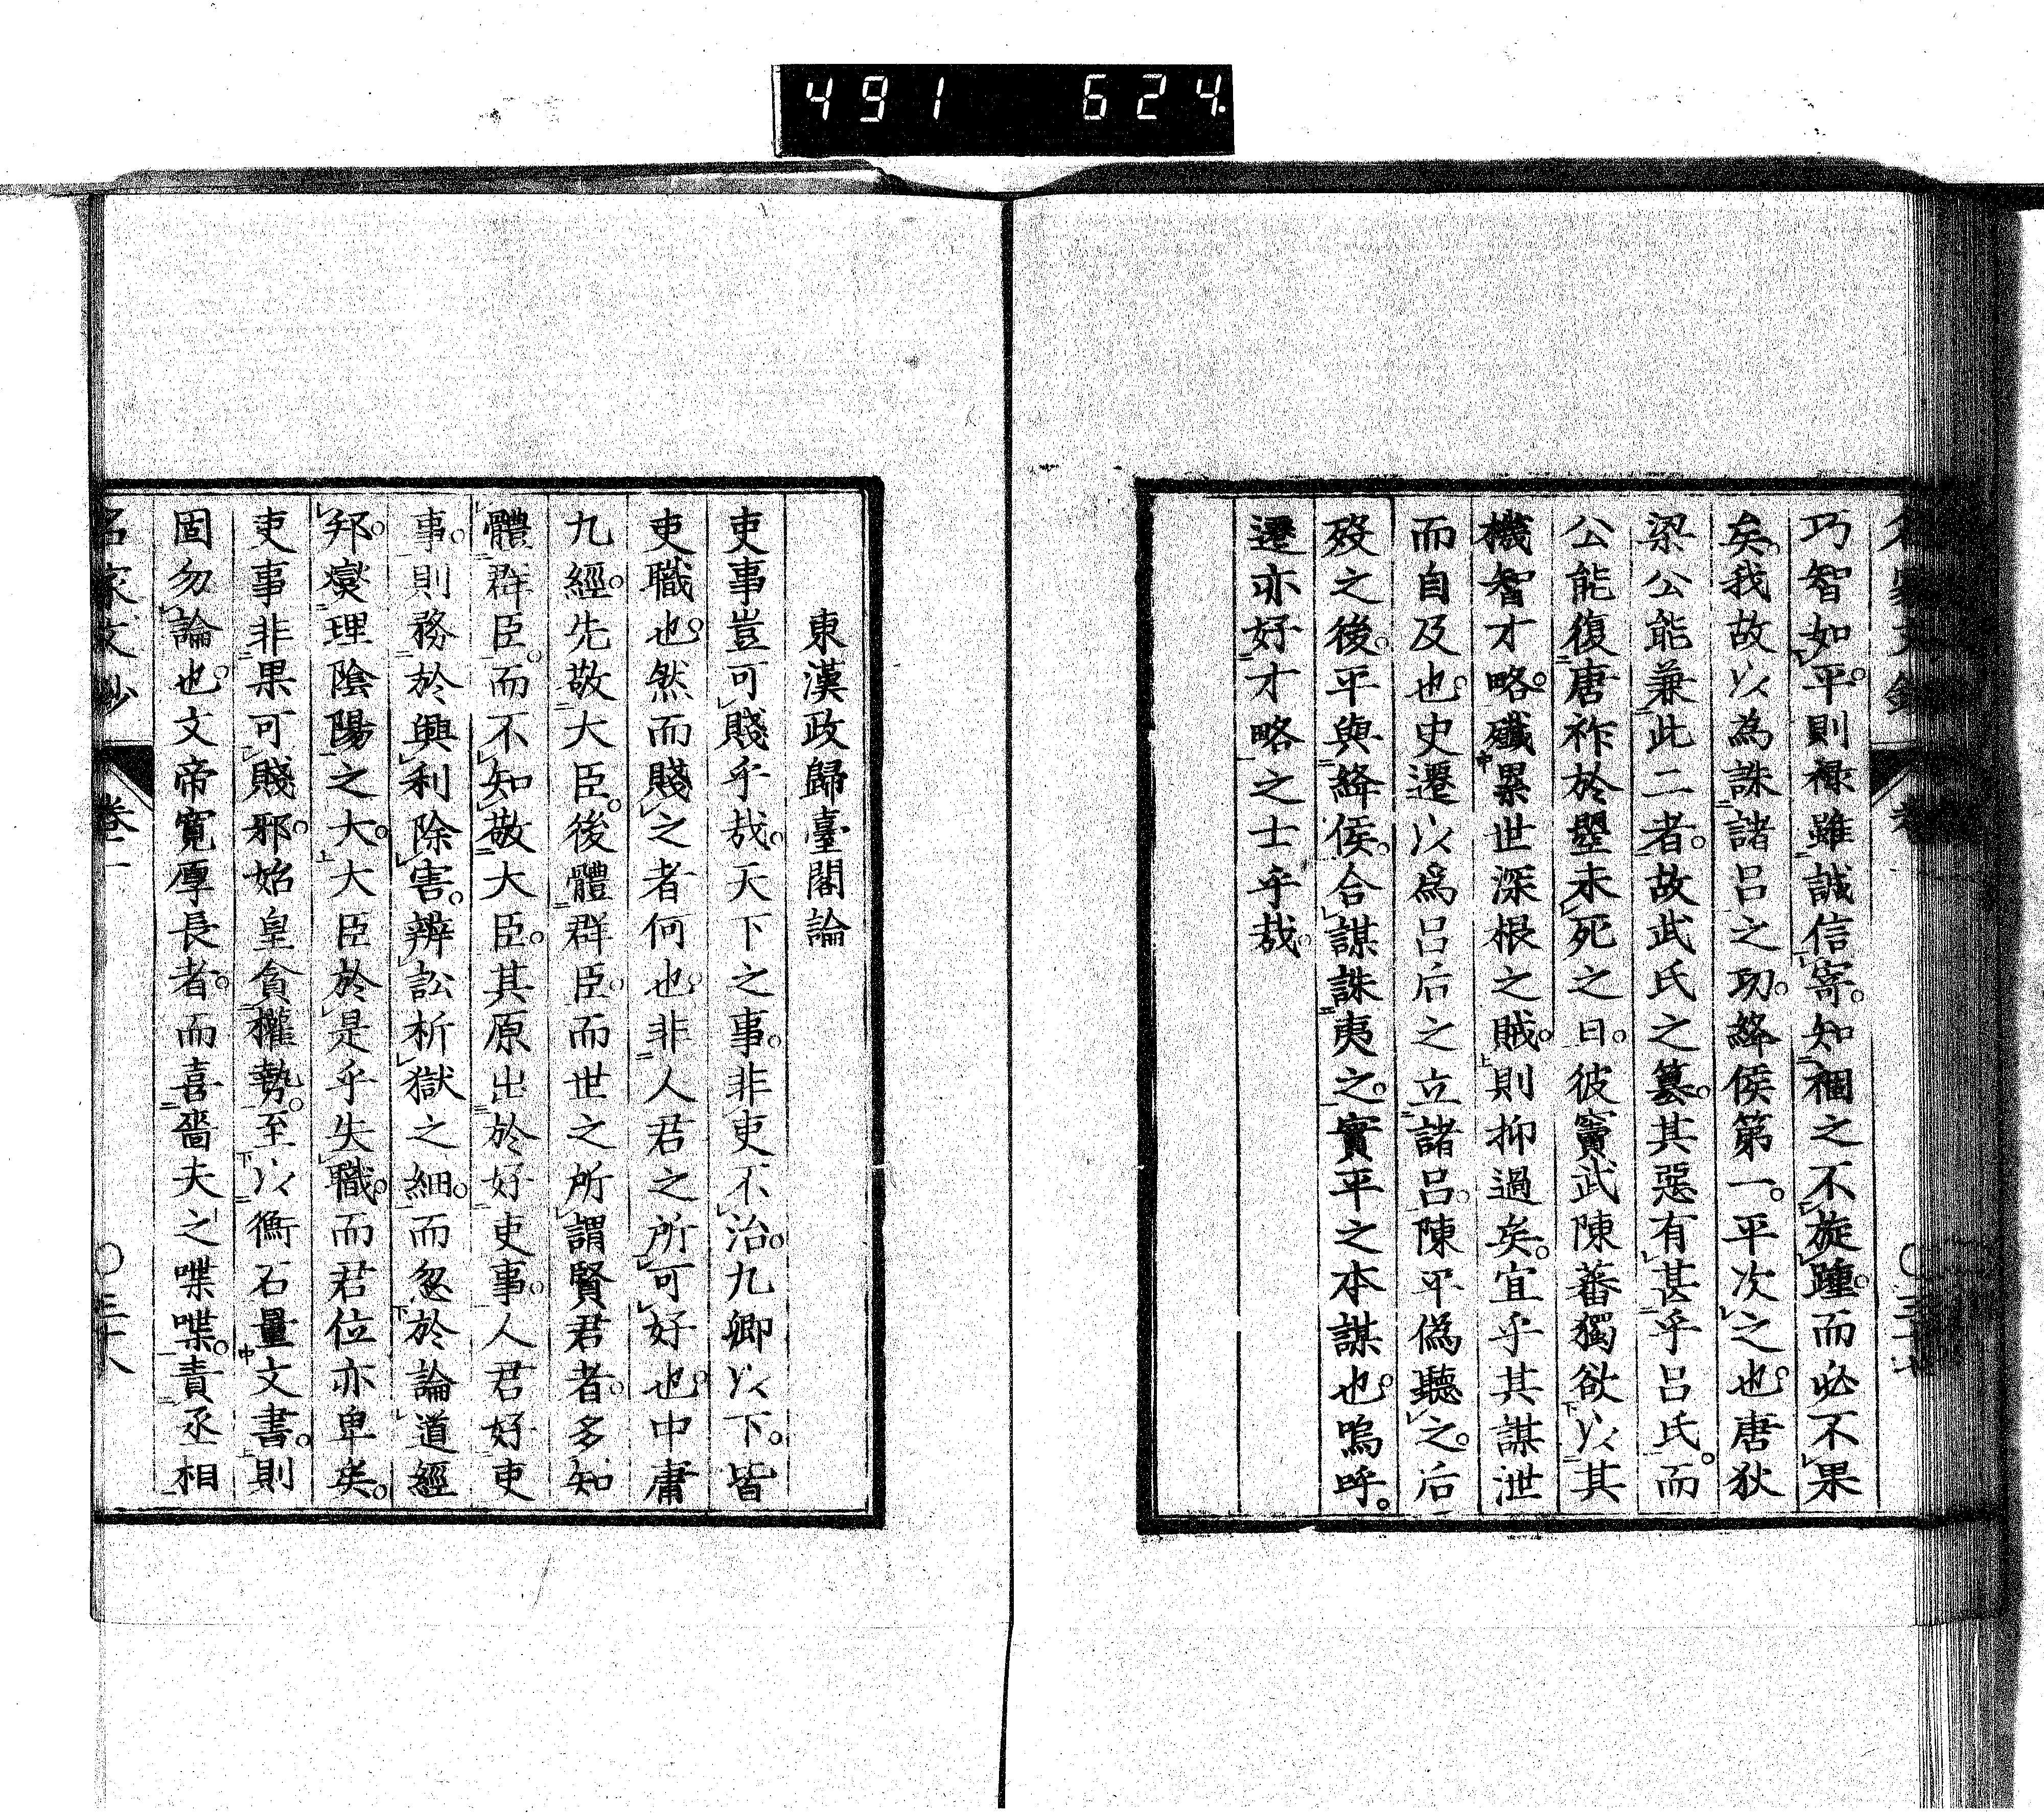 491 624.
巧智如平。則祿雖誠信寄。知稛之不旋踵。而必不果
矣。我故以為誅諸呂之功。絳侯第一。平次之也。唐狄
梁公能兼此二者。故武氏之篡。其惡有甚乎呂氏。而
公能復唐祚於墨未死之日。彼竇武陳蕃獨欲以其
機智才略。殲累世深根之賊。則抑過矣。宜乎其謀泄
而自及也。史遷以爲呂后之立諸呂。陳平偽聽之。后
歿之後。平與絳侯。合謀誅夷之。實平之本謀也。嗚呼。
遷亦好才略之士乎哉。
東漢政歸臺閣論
吏事豈可賤乎哉。天下之事。非吏不治。九卿以下。皆
吏職也。然而賤之者何也。非人君之所可好也。中庸
九經。先敬大臣。後體群臣。而世之所謂賢君者。多知
體群臣。而不知敬大臣。其原出於好吏事。人君好吏
事。則務於興利除害。辨訟析獄之細。而忽於論道經
邦。燮理陰陽之大。大臣於是乎失職。而君位亦卑矣。
吏事非果可賤邪。始皇貪權勢。至以衡石量文書。則
固勿論也。文帝寬厚長者。而喜嗇夫之喋喋。責丞相
名家文鈔 卷二 〇三十八